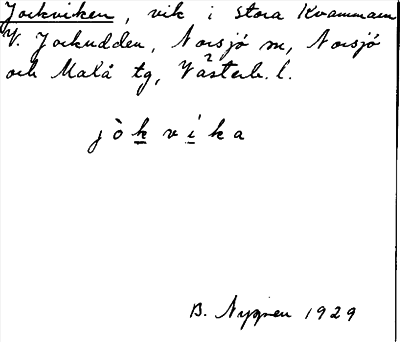 Jockviken, vik i Stora Kvammaren
V. Jockudden, Norsjö sn, Norsjö
och Malå tg, Västerb. l.
jò̀k víka
B. Nygren 1929